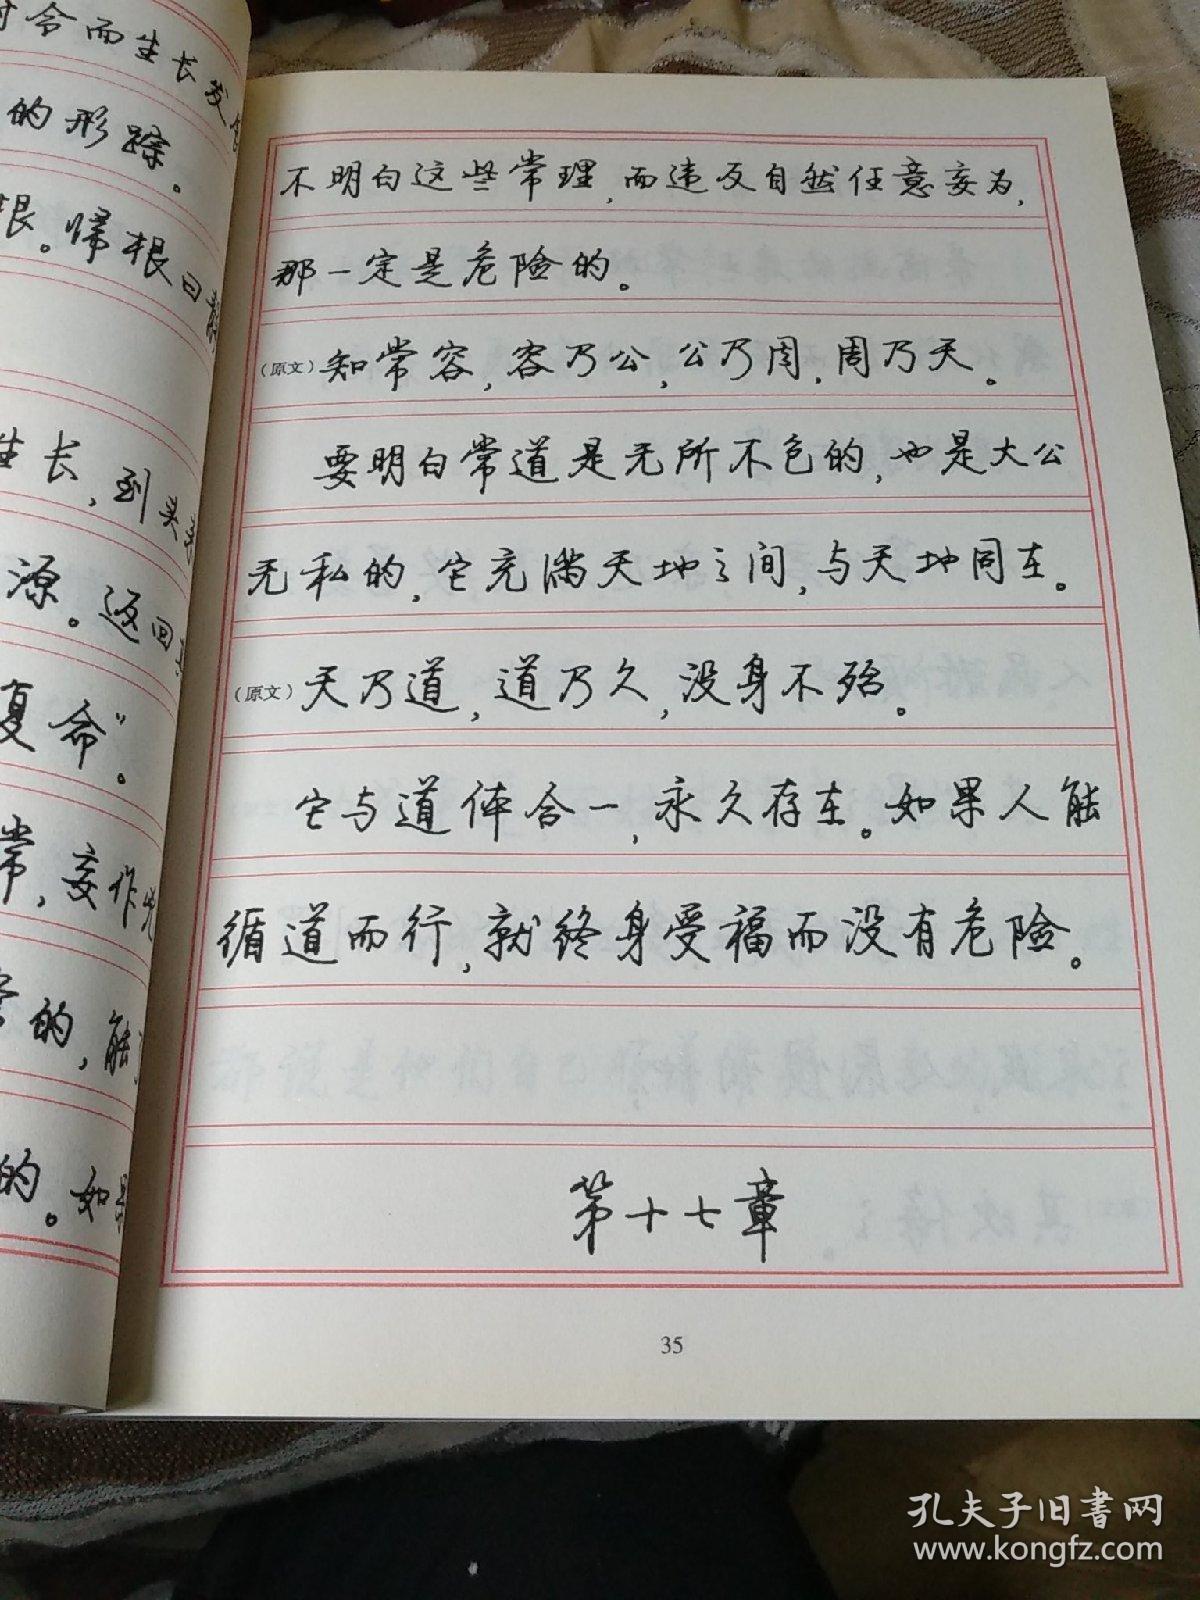 时令而生长发
的形踪。
根。归根曰静
生长,到头
源。返回
复命”。
常,妄作
的,能
的。如
不明白这些常理,而违反自然任意妄为,
那一定是危险的。
(原文)知常容,容乃公,公乃周,周乃天。
要明白常道是无所不包的,也是大公
无私的,它充满天地之间,与天地同在。
(原文)天乃道,道乃久,没身不殆。
它与道体合一,永久存在。如果人能
循道而行,就终身受福而没有危险。
第十七章
35
孔夫子旧书网
www.kongfz.com